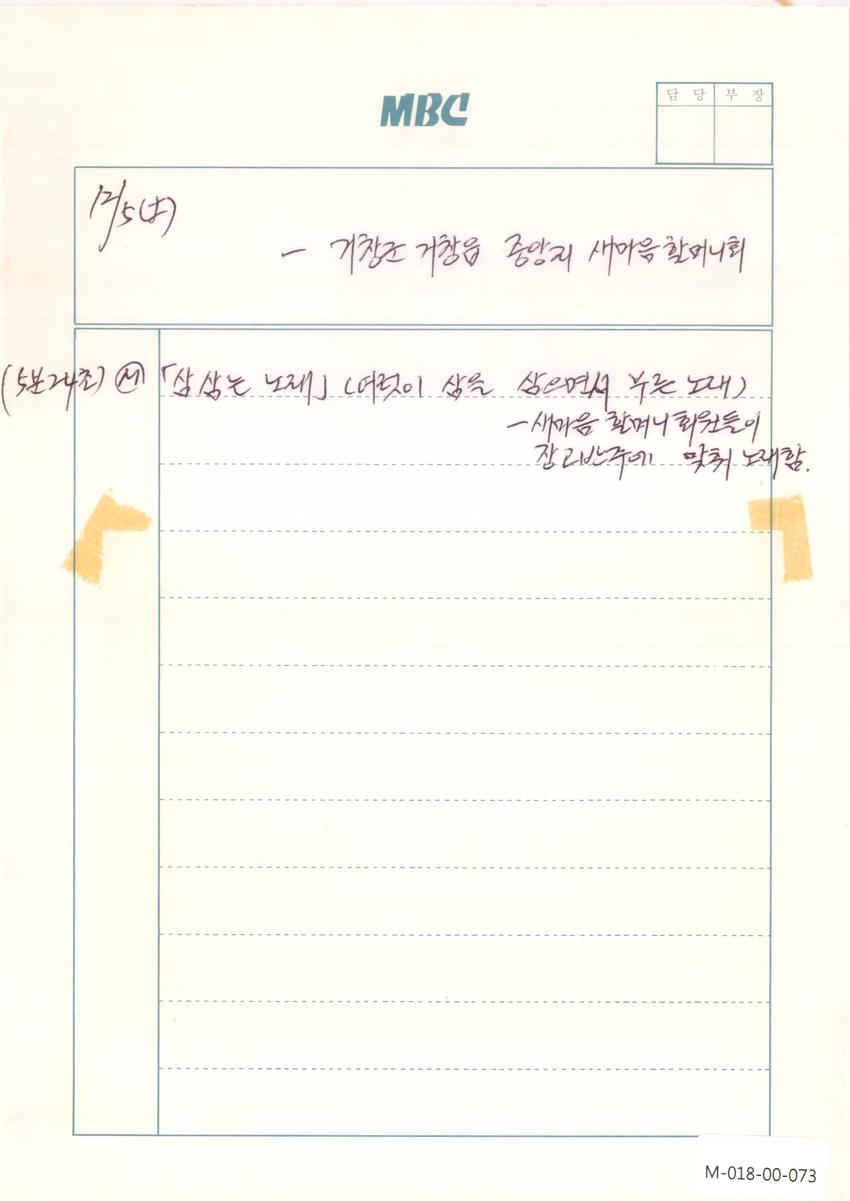 MBC
담 당 부 장
12/5(水)
- 거창군 거창읍 중앙리 새마음할머니회
(5분24초) 「삼 삼는 노래」 (여럿이 삼을 삼으면서 부르는 노래)
- 새마음 할머니회원들이
장고반주에 맞춰 노래함.
M-018-00-073